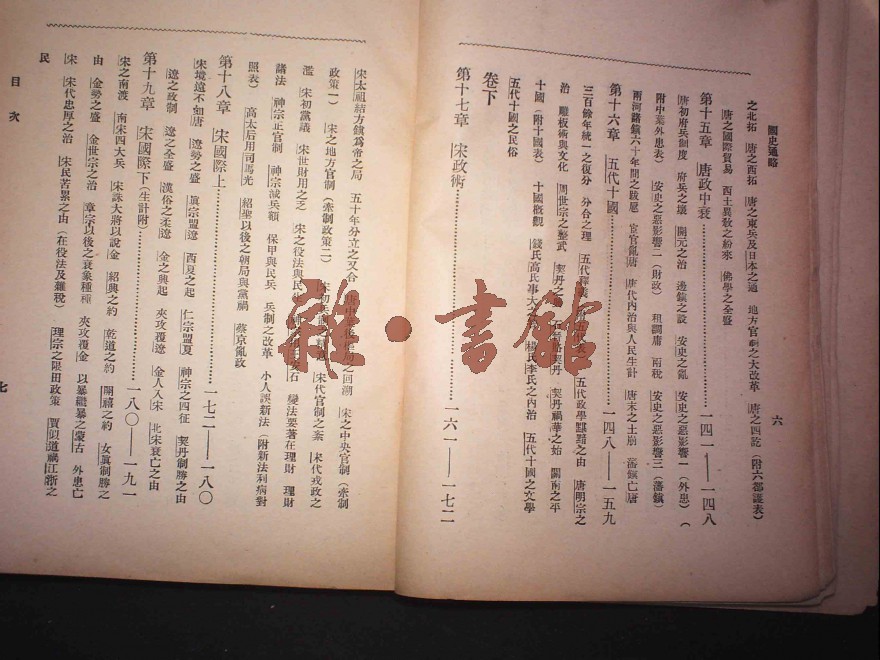 國史通略
六
之北拓 唐之西拓 唐之東兵及日本之通 地方官制之大改革 唐之四訖(附六都護表)
唐之國際貿易 西土異敎之紛來 佛學之全盛
第十五章 唐政中衰 一四一——一四八
唐初府兵制度 府兵之壞 開元之治 邊鎭之設 安史之亂 安史之惡影響一(外患)(
附中葉外患表) 安史之惡影響二(財政) 租調庸 兩稅 安史之惡影響三(藩鎭)
兩河諸鎭六十年間之跋扈 宦官亂唐 唐代內治與人民生計 唐末之土崩 藩鎭亡唐
第十六章 五代十國 一四八——一五九
三百餘年統一之復分 分合之理 五代 (附五代表) 五代政學 之由 唐明宗之
治 雕板術與文化 周世宗之整武 契丹之 契丹 契丹禍華之始 關南之平
十國(附十國表) 十國槪觀 錢氏高氏事大之 楊氏李氏之內治 五代十國之文學
五代十國之民俗
卷下
第十七章 宋政術 一六一——一七二
宋太祖結方鎭爲帝之局 五十年分立之又合 之回溯 宋之中央官制(牽制
政策一) 宋之地方官制(牽制政策二) 宋初兵 宋代官制之紊 宋代戎政之
濫 宋初黨議 宋世財用之乏 宋之役法與民 安石 變法要著在理財 理財
諸法 神宗正官制 神宗減兵額 保甲與民兵 兵制之改革 小人誤新法(附新法利病對
照表) 高太后用司馬光 紹聖以後之朝局與黨禍 蔡京亂政
第十八章 宋國際上 一七二——一八〇
宋境遠不如唐 遼勢之盛 眞宗盟遼 西夏之起 仁宗盟夏 神宗之四征 契丹制勝之由
遼之政制 遼之全盛 漢俗之柔遼 金之興起 夾攻覆遼 金人入宋 北宋衰亡之由
第十九章 宋國際下(生計附) 一八〇——一九一
宋之南渡 南宋四大兵 宋誅大將以說金 紹興之約 乾道之約 開禧之約 女眞制勝之
由 金勢之盛 金世宗之治 章宗以後之衰象種種 夾攻覆金 以暴繼暴之蒙古 外患亡
宋 宋代忠厚之治 宋民苦累之由(在役法及雜稅) 理宗之限田政策 賈似道禍江浙之
民
目次
七
雅·書館